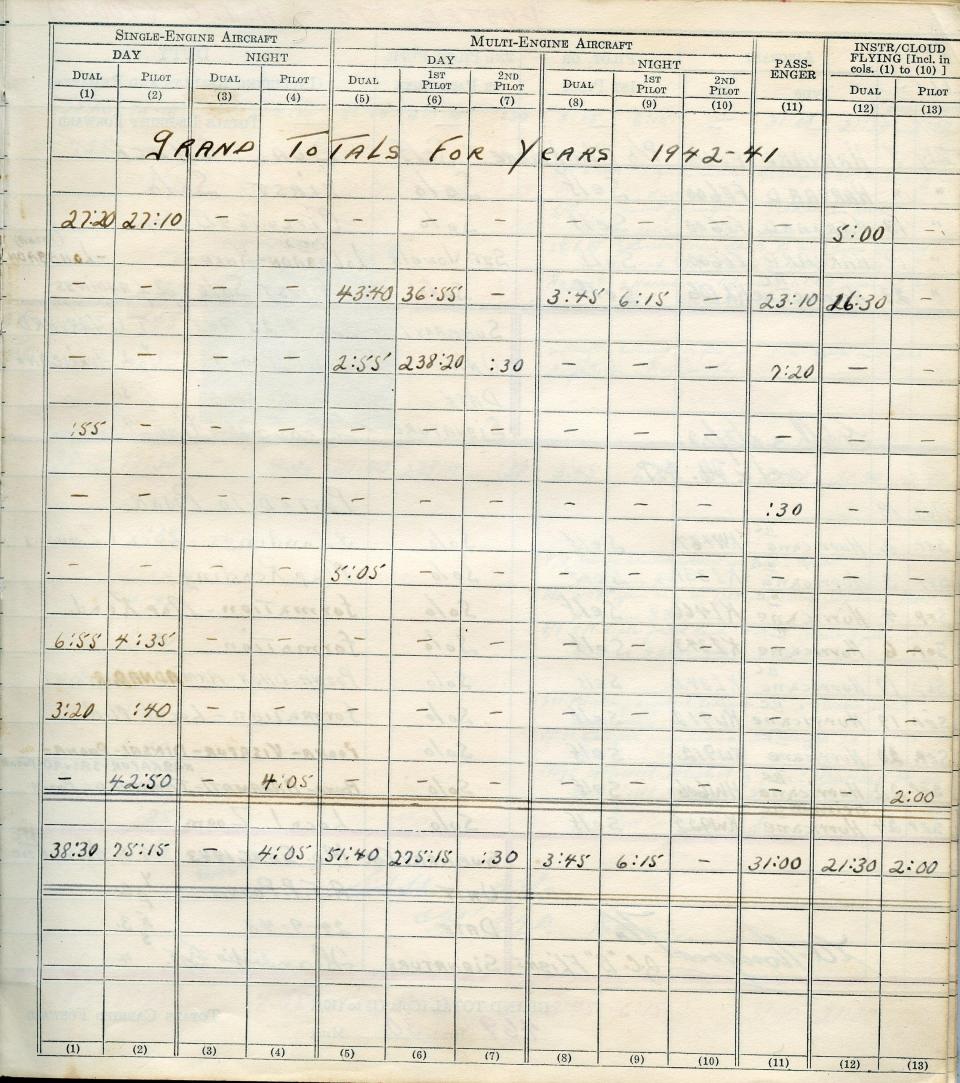 SINGLE-ENGINE AIRCRAFT MULTI-ENGINE AIRCRAFT PASS-ENGER INSTR/CLOUD FLYING [Incl. in cols. (1) to (10) ]
DAY NIGHT DAY NIGHT
DUAL PILOT DUAL PILOT DUAL 1ST PILOT 2ND PILOT DUAL 1ST PILOT 2ND PILOT DUAL PILOT
(1) (2) (3) (4) (5) (6) (7) (8) (9) (10) (11) (12) (13)
GRAND TOTALS FOR YEARS 1942-41
27:20 27:10 – – – – – – – – – 5:00 –
– – – – 43:40 36:55 – 3:45 6:15 – 23:10 16:30 –
– – – – 2:55 238:20 :30 – – – 7:20 – –
:55 – – – – – – – – – – – –
– – – – – – – – – – :30 – –
– – – – 5:05 – – – – – – – –
6:55 4:35 – – – – – – – – – – –
3:20 :40 – – – – – – – – – – –
– 42:50 – 4:05 – – – – – – – – 2:00
38:30 75:15 – 4:05 51:40 275:15 :30 3:45 6:15 – 31:00 21:30 2:00
(1) (2) (3) (4) (5) (6) (7) (8) (9) (10) (11) (12) (13)